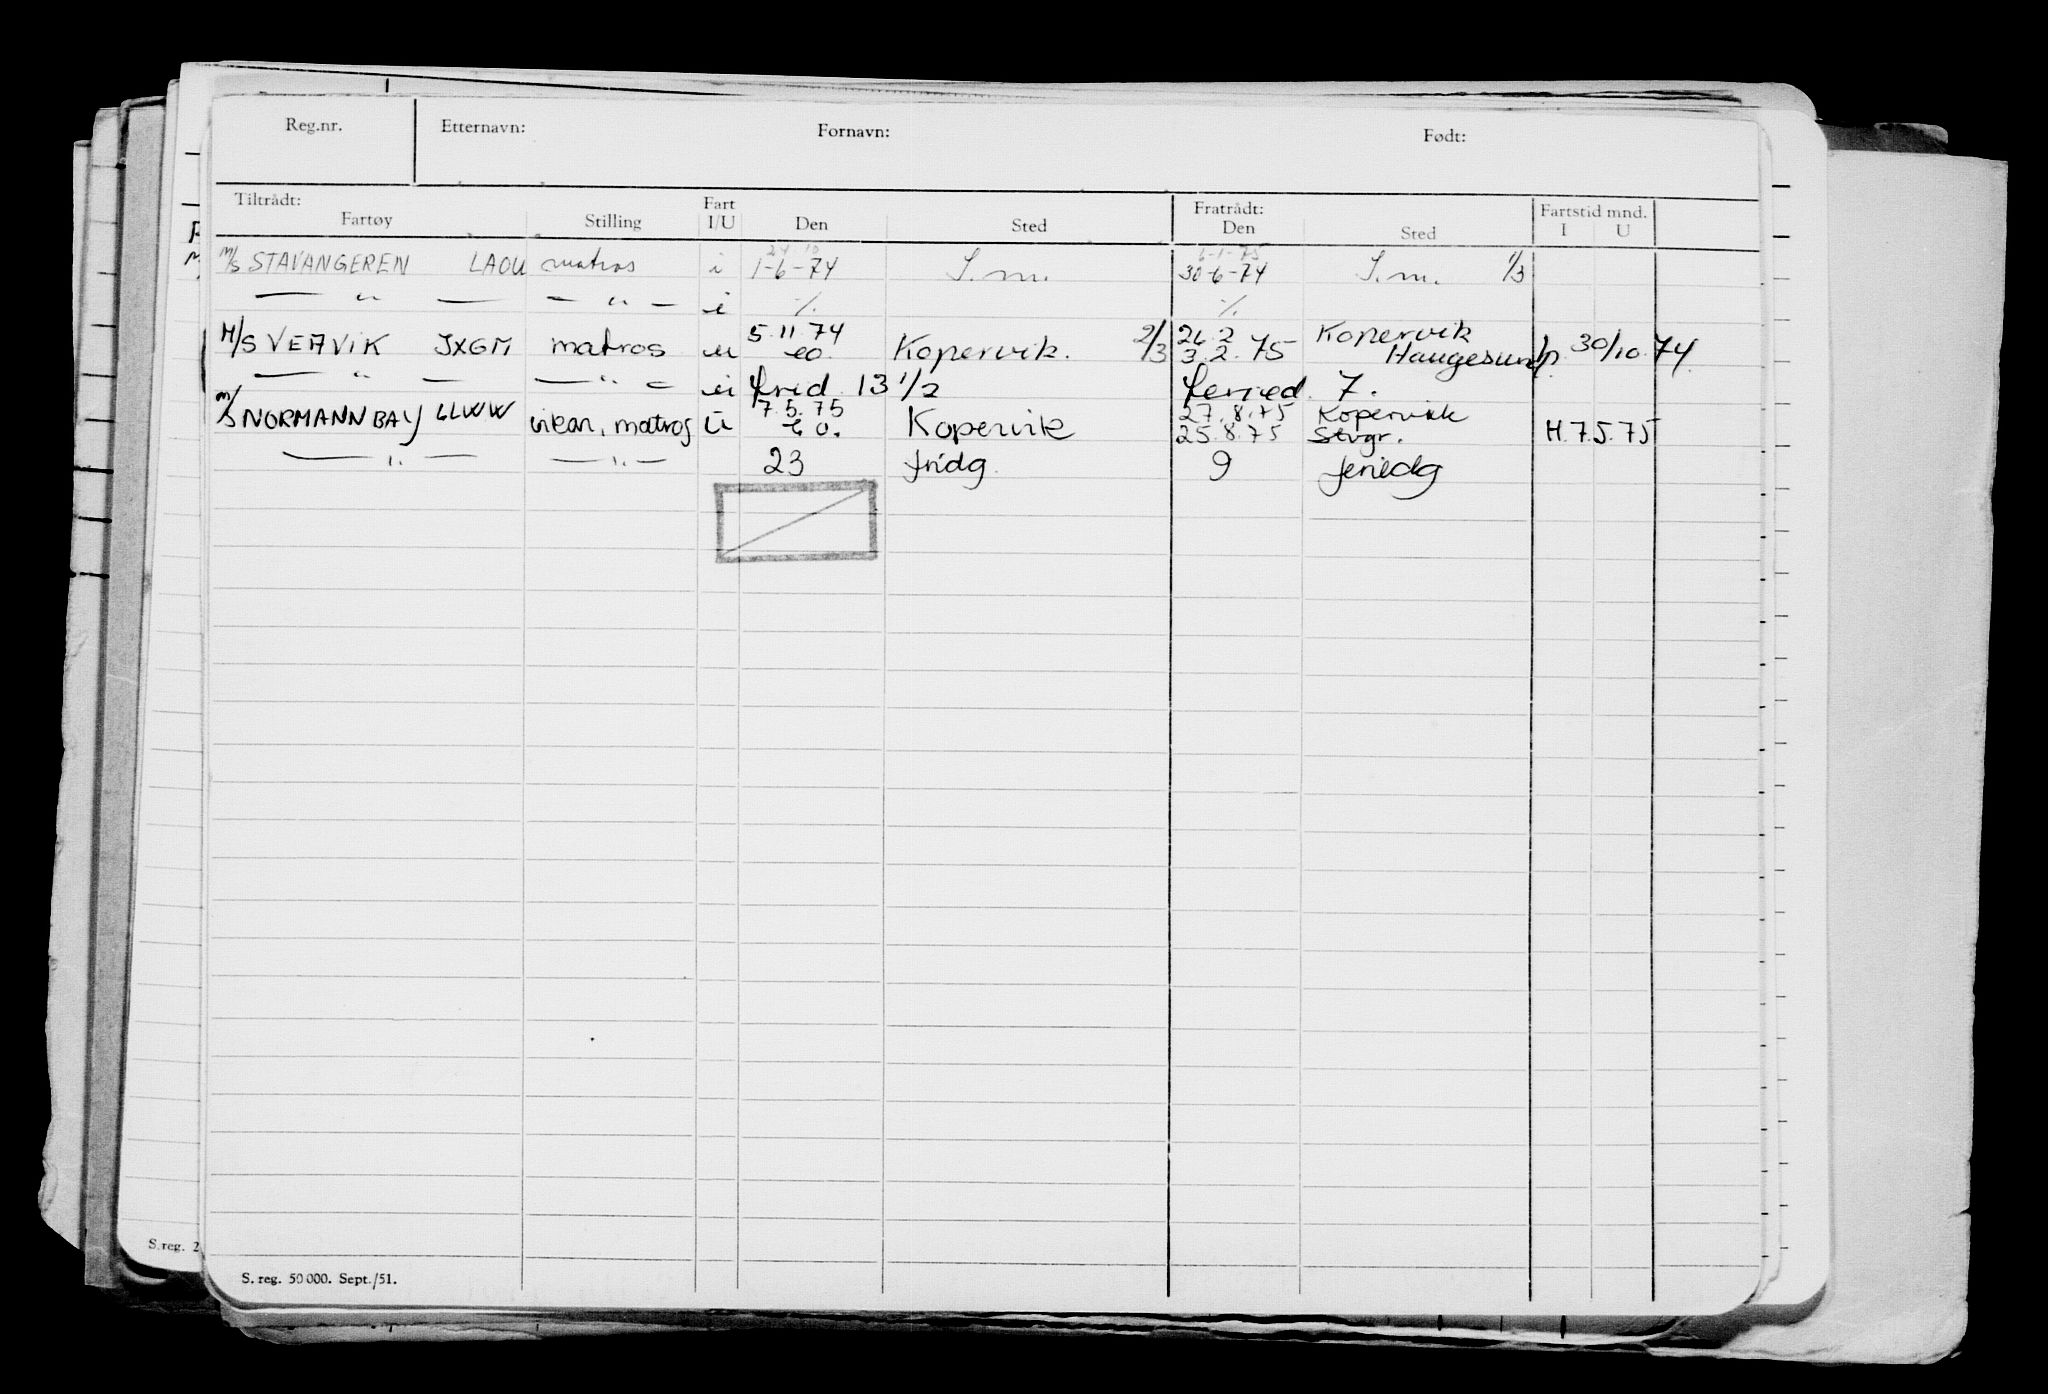 Reg.nr. Etternavn: Fornavn: Født:
Tiltrådt: Fartøy Stilling Fart I/U Den Sted Fratrådt: Den Sted Fartstid mnd. I U
24 10 6-1-75
M/S STAVANGEREN LAOU matros i 1-6-74 S.m. 30-6-74 S.m. 1/3
— " — — " — i ./. ./.
5.11.74 26.2 Kopervik
M/S VEAVIK JXGM matros u eo. Kopervik. 2/3 3.2.75 Haugesund p. 30/10.74.
— " — — " — frid. 13 1/2 feried. 7.
7.5.75 27.8.75 Kopervik
M/S NORMANN BAY LLWW vikar, matros U eo. Kopervik 25.8.75 Stvgr. H.7.5.75
— " — — " — 23 fridg. 9 feriedg
S. reg. 2
S. reg. 50 000. Sept./51.